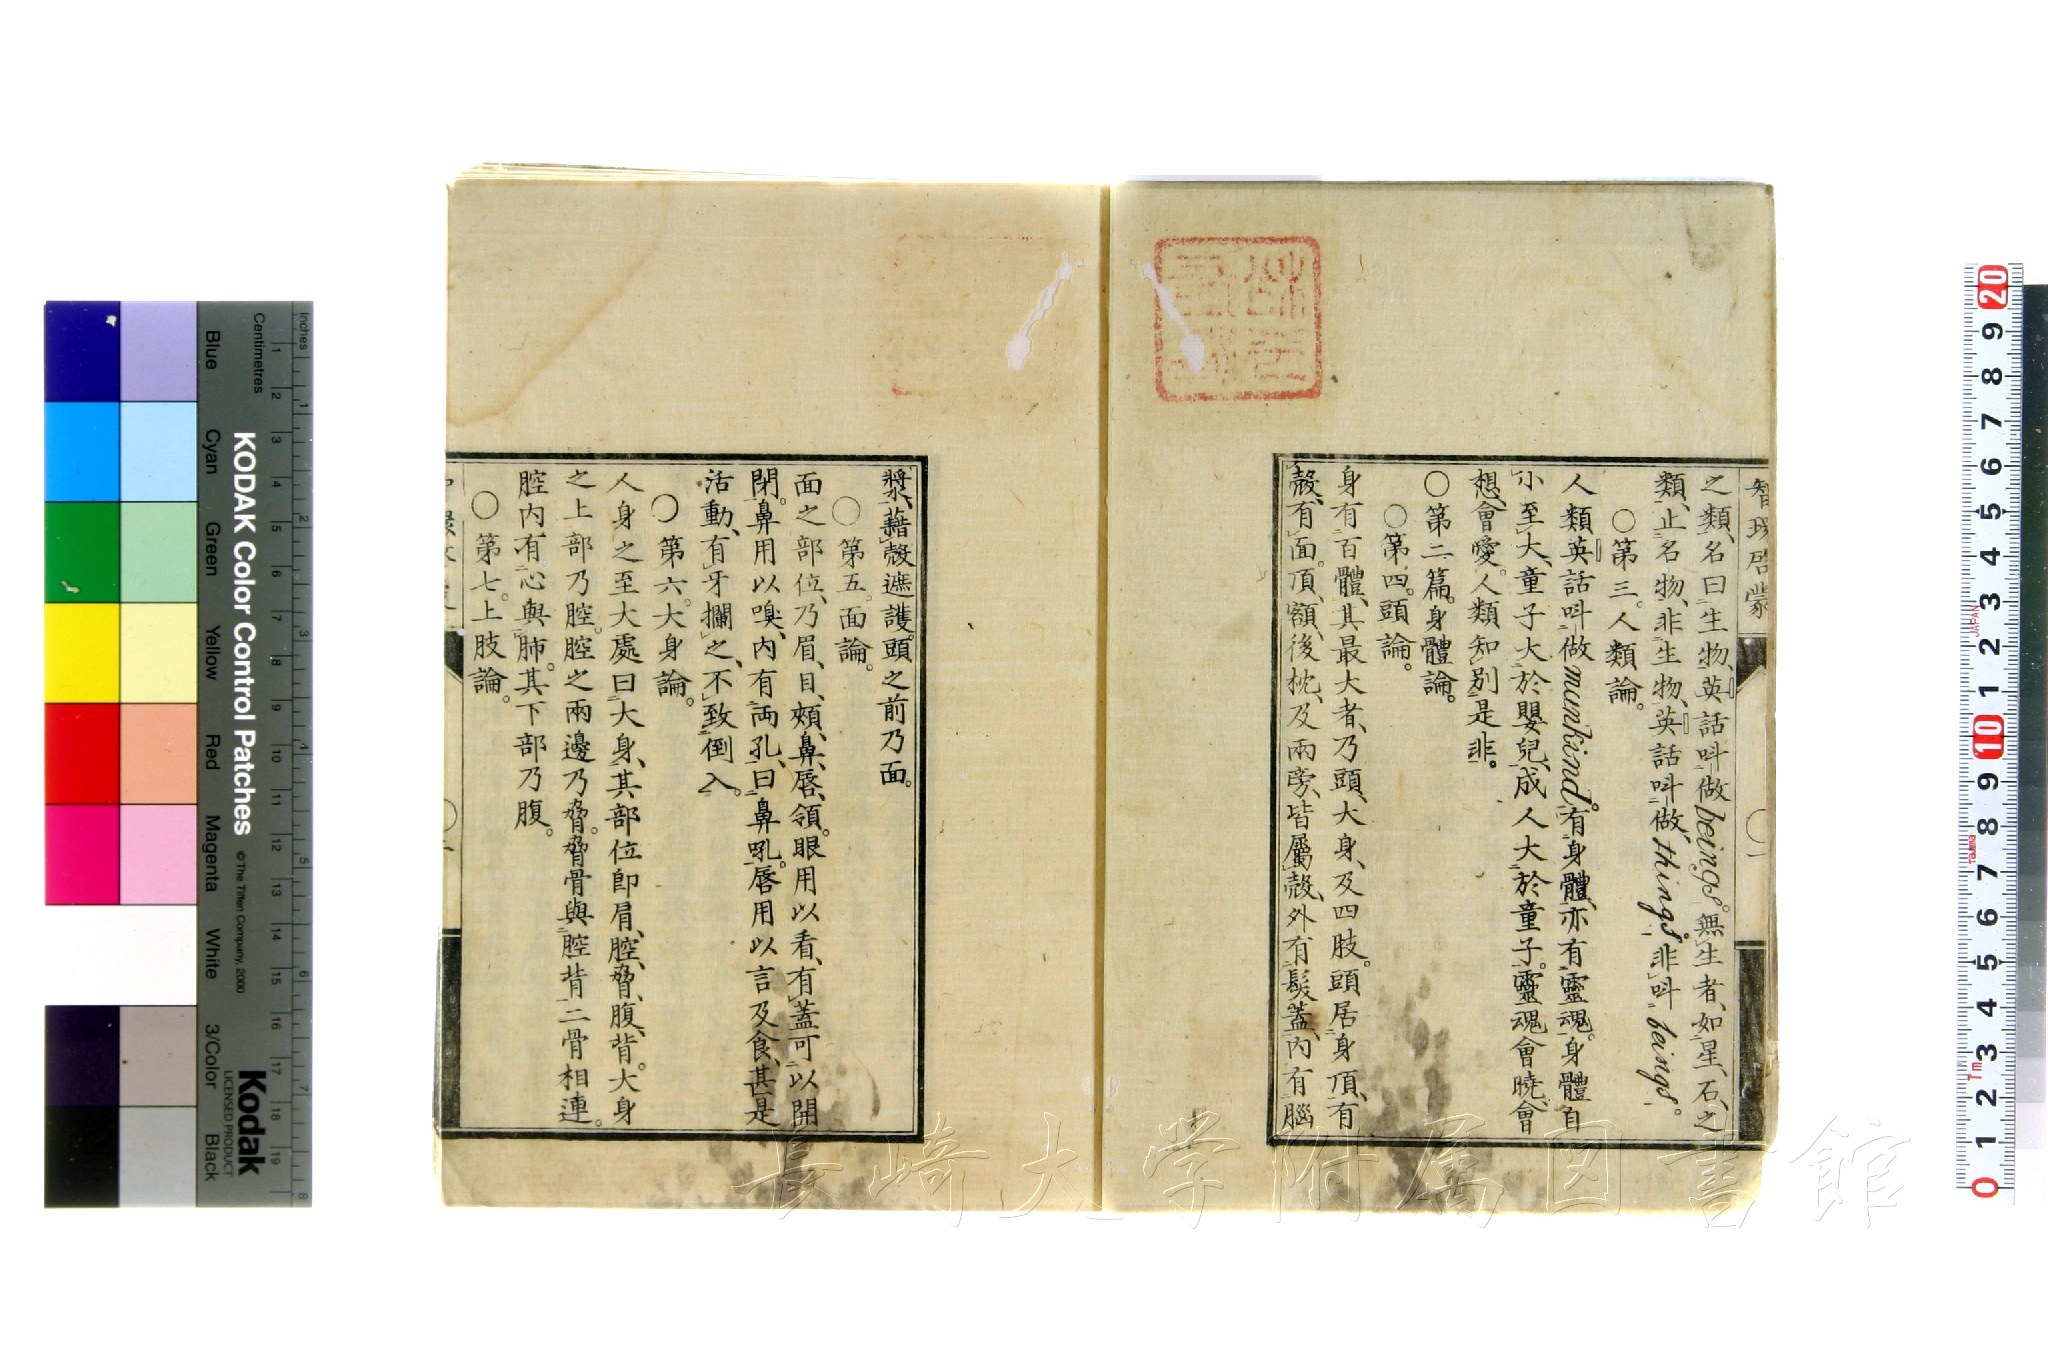 智環啓蒙
之類、名曰生物、英話呌做beings。無生者、如星、石、之
類、止名物、非生物、英話呌做things。非呌beings。
○第三。人類論。
人類英話呌做munkind。有身體、亦有靈魂。身體自
小至大、童子大於嬰兒、成人大於童子。靈魂會曉、會
想、會愛。人類知別是非。
○第二篇。身體論。
○第四。頭論。
身有百體、其最大者、乃頭、大身、及四肢。頭居身頂、有
殼、有面。頂、額、後枕、及兩旁、皆屬殼、外有髮蓋、內有腦
漿、藉殼遮護。頭之前乃面。
○第五。面論。
面之部位、乃眉、目、頰、鼻、唇、頷。眼用以看、有蓋可以開
閉。鼻用以嗅、內有両孔、曰鼻吼。唇用以言及食、甚是
活動、有牙攔之、不致倒入。
○第六。大身論。
人身之至大處曰大身、其部位即肩、腔、脅、腹、背。大身
之上部乃腔。腔之兩邊乃脅。脅骨與腔背二骨相連。
腔內有心與肺。其下部乃腹。
○第七。上肢論。
KODAK Color Control Patches
© The Tiffen Company, 2000
Kodak
LICENSED PRODUCT
Inches
Centimetres
Blue
Cyan
Green
Yellow
Red
Magenta
White
3/Color
Black
1 2 3 4 5 6 7 8 9 10 11 12 13 14 15 16 17 18 19
1 2 3 4 5 6 7 8
20 9 8 7 6 5 4 3 2 1 10 9 8 7 6 5 4 3 2 1 0
JAPAN
Tajima
長崎大学附属図書館